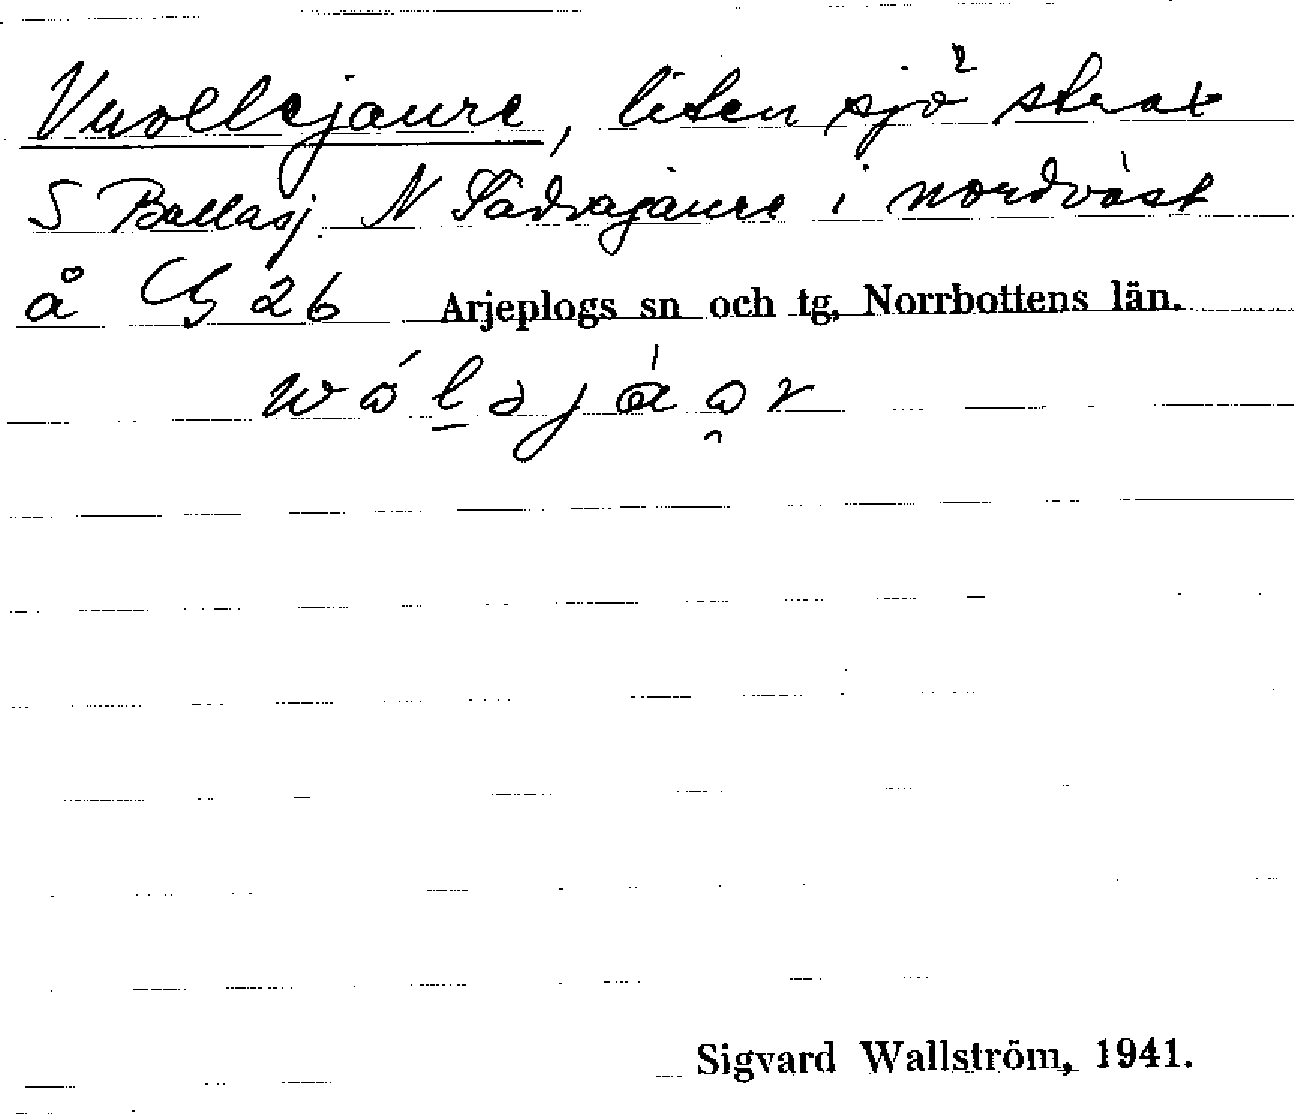 Vuollejaure, liten sjö strax
S Ballasj. N Sädvajaure i nordväst
å G 26 Arjeplogs sn och tg, Norrbottens län.
Sigvard Wallström, 1941.